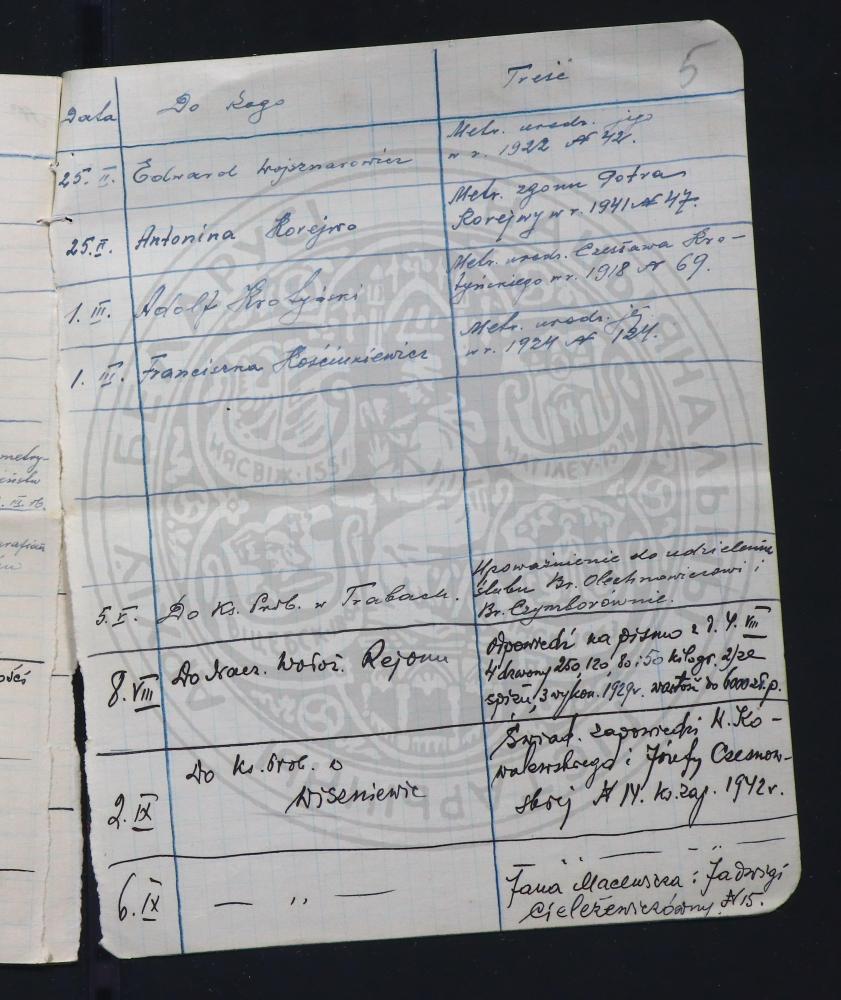 5
Data Do Kogo Treść
25. II. Edward Wojsznarowicz Metr. urodz. jego
w r. 1922 № 42.
25. II. Antonina Korejwo Metr. zgonu Potra
Korejwy w r. 1941 № 47.
1. III. Adolf Krotyński Metr. urodz. Czesława Kro-
tyńskiego w r. 1918 № 69.
1. III. Franciszka Kościukiewicz Metr. urodz. jej
w r. 1924 № 124.
5. V. Do Ks. Prob. w Trabach. Upoważnienie do udzielenia
ślubu Br. Olechnowiczowi i
Br. Czymborównie.
8. VIII Do Nacz. Wołoż. Rejonu Odpowiedź na pismo z d. 4. VIII
4 dzwony 250, 120, 80 i 50 kilogr. 2) ze
spiżu, 3) wykon. 1929 r. wartość do 6000 zł. p.
2. IX Do Ks. Prob. w
Wiszniewie
Świad. zapowiedzi K. Ko-
walewskiego i Józefy Czesnow-
skiej № 14. ks. zap. 1942 r.
6. IX — „ — — „ —
Jana Macewicza i Jadwigi
Cieleżewiczówny. № 15.
НЯСВІЖ·1551
МАГІЛЕЎ·1618